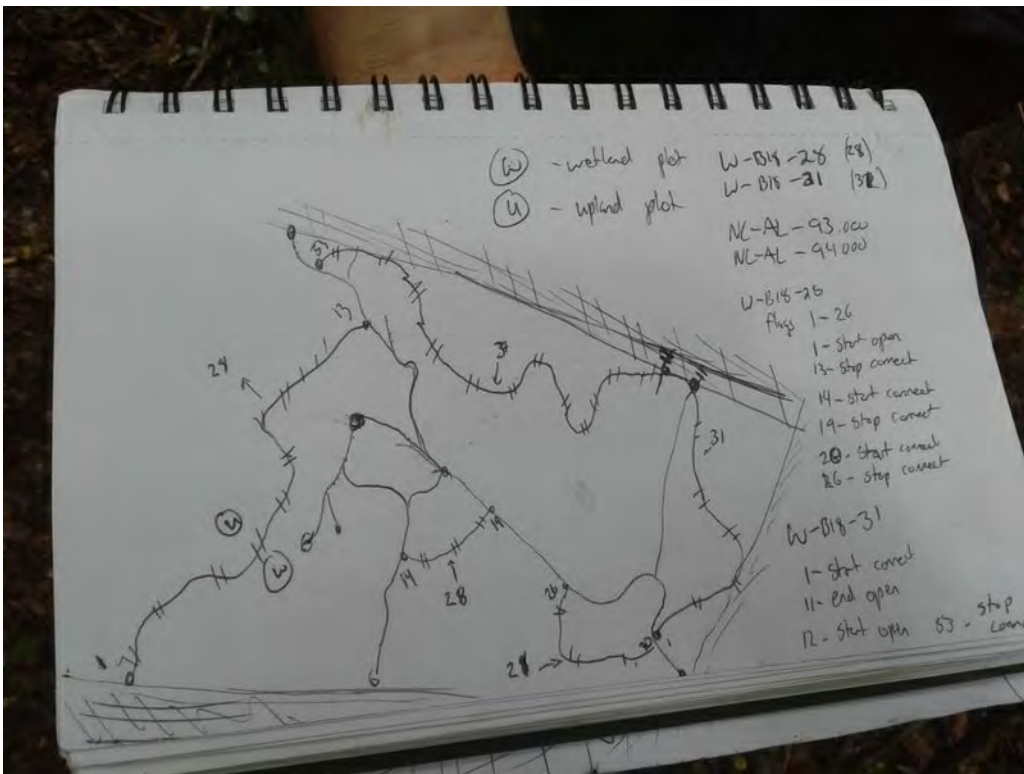 W - wetland plot
U - upland plot
W-B18-28 (28)
W-B18-31 (31)
NC-AL-93.000
NC-AL-94000
W-B18-28
flags 1-26
1-start open
13-stop connect
14-start connect
19-stop connect
20-start connect
26-stop connect
W-B18-31
1-start connect
11-end open
12-start open 53-stop
53
13
28
31
31
U
W
14
19
28
26
20
1
28
1